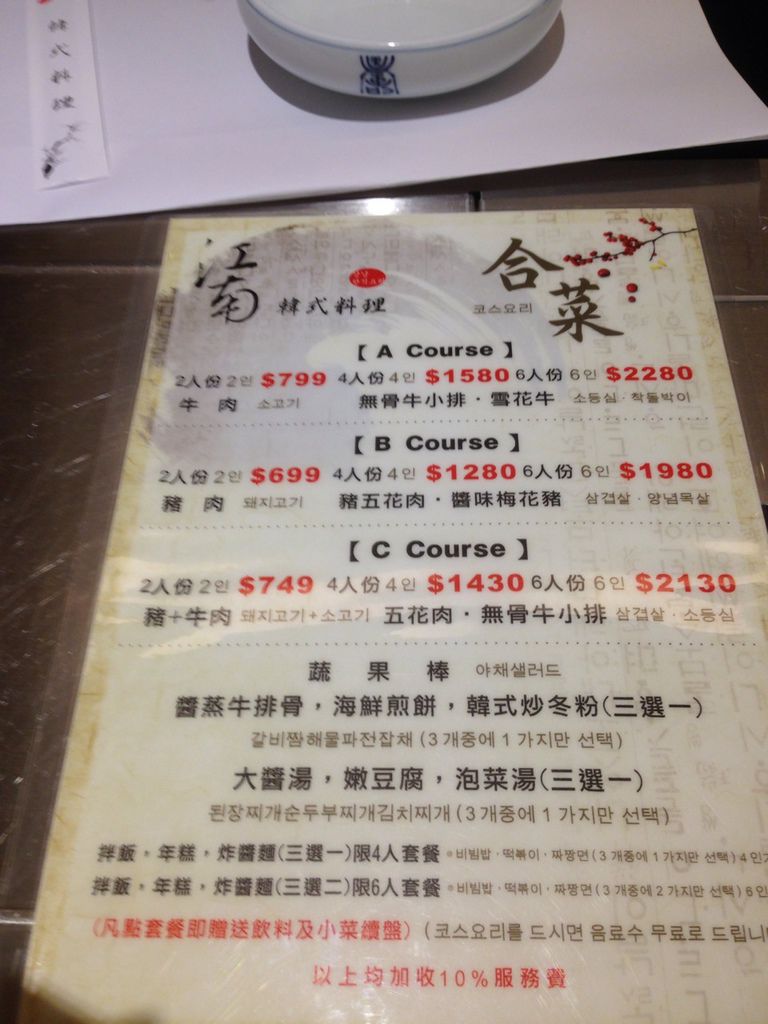 韓式料理
江南 韓式料理
合菜 코스요리
【 A Course 】
2人份 2인 $799 4人份 4인 $1580 6人份 6인 $2280
牛肉 소고기 無骨牛小排・雪花牛 소등심 · 착돌박이
【 B Course 】
2人份 2인 $699 4人份 4인 $1280 6人份 6인 $1980
豬肉 돼지고기 豬五花肉・醬味梅花豬 삼겹살 · 양념목살
【 C Course 】
2人份 2인 $749 4人份 4인 $1430 6人份 6인 $2130
豬+牛肉 돼지고기+소고기 五花肉・無骨牛小排 삼겹살 · 소등심
蔬果棒 야채샐러드
醬蒸牛排骨，海鮮煎餅，韓式炒冬粉(三選一)
갈비찜해물파전잡채 (3 개중에 1 가지만 선택)
大醬湯，嫩豆腐，泡菜湯(三選一)
된장찌개순두부찌개김치찌개 (3 개중에 1 가지만 선택)
拌飯，年糕，炸醬麵(三選一)限4人套餐 • 비빔밥 · 떡볶이 · 짜짱면 (3 개중에 1 가지만 선택) 4 인
拌飯，年糕，炸醬麵(三選二)限6人套餐 • 비빔밥 · 떡볶이 · 짜짱면 (3 개중에 2 가지만 선택) 6 인
(凡點套餐即贈送飲料及小菜續盤) (코스요리를 드시면 음료수 무료로 드립니
以上均加收10%服務費